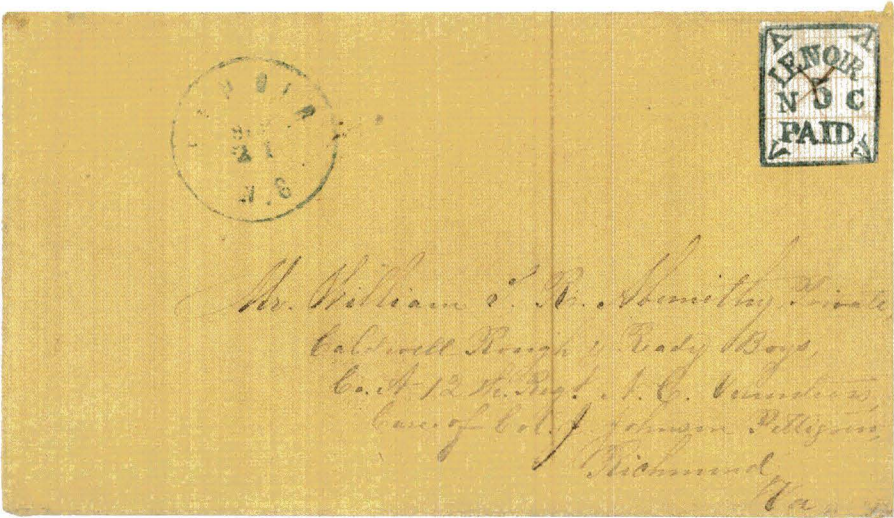 LENOIR
N.C
LENOIR
N 5 C
PAID
Mr. William T. R. Abernathy, Private,
Caldwell Rough & Ready Boys,
Co. A 12 th. Regt. N. C. Volunteers,
Care of Col. J. Johnson Pettigrew,
Richmond,
Va